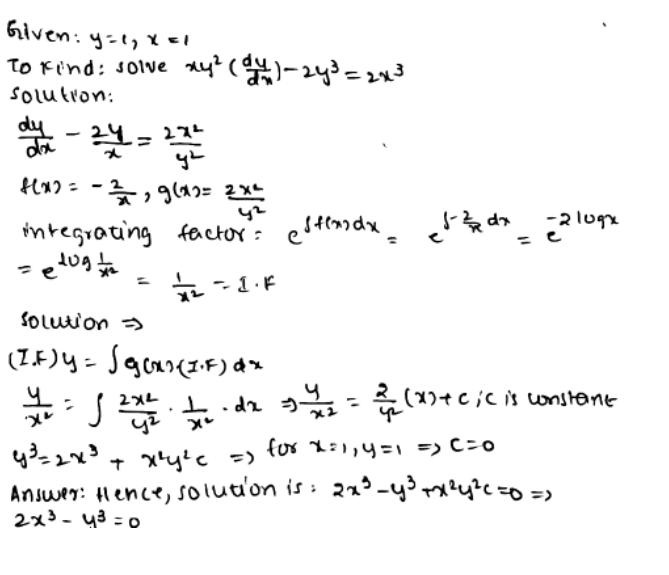 Given: y=1, x=1
To Find: solve xy² (dy/dx) - 2y³ = 2x³
Solution:
dy/dx - 2y/x = 2x²/y²
f(x) = - 2/x, g(x) = 2x²/y²
integrating factor = e^∫f(x)dx = e^∫-2/x dx = e^-2logx
= e^log 1/x² = 1/x² = I.F
Solution ⇒
(I.F)y = ∫g(x)(I.F) dx
y/x² = ∫ 2x²/y² · 1/x² · dx ⇒ y/x² = 2/y² (x)+c ; c is constant
y³=2x³ + x²y²c ⇒ for x=1, y=1 ⇒ C=0
Answer: Hence, solution is: 2x³-y³+x²y²c=0 ⇒
2x³ - y³ = 0